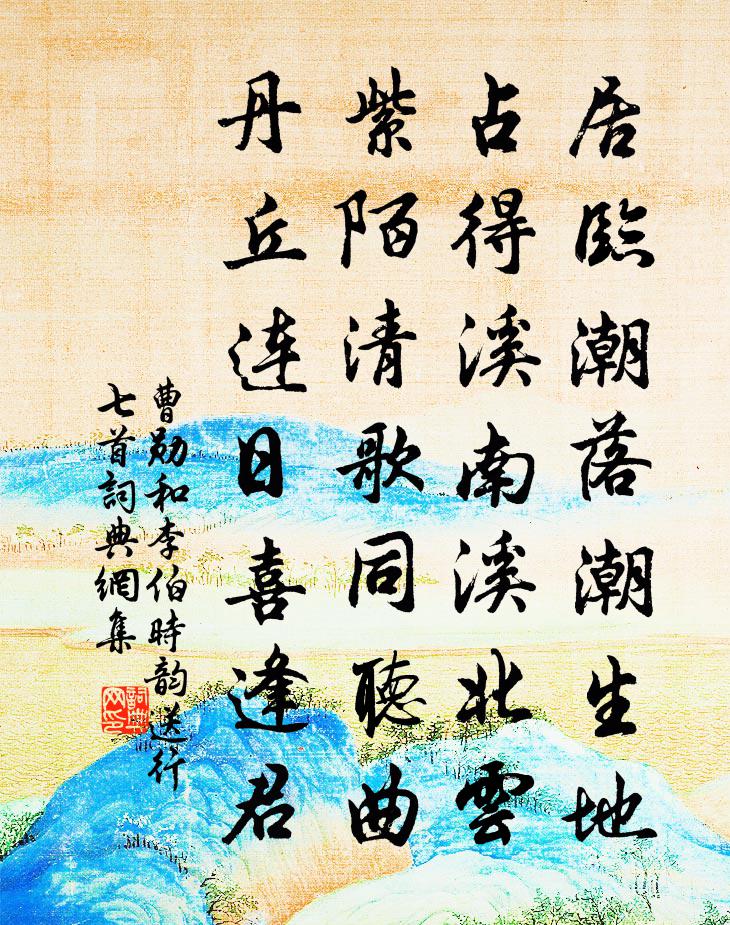 居臨潮落潮生地
占得溪南溪北雲
紫陌清歌同聽曲
丹丘连日喜逢君
曹勛和李伯時韵送行
七首詞典網集